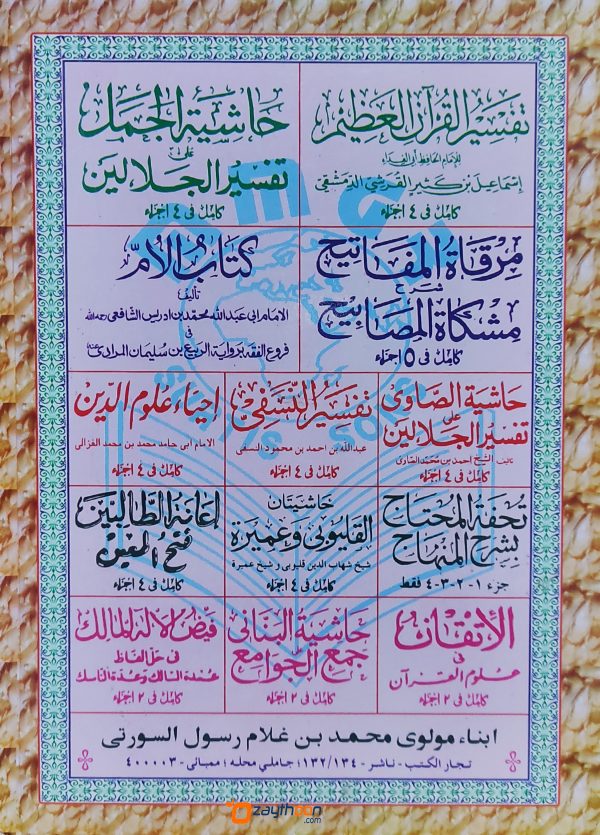 تفسير القرآن العظيم
للإمام الحافظ أبو الفداء
إسماعيل بن كثير القرشي الدمشقي
كامل في ٤ اجزاء
حاشية الجمل
على
تفسير الجلالين
كامل في ٤ اجزاء
مرقاة المفاتيح
شرح
مشكاة المصابيح
كامل في ٥ اجزاء
كتاب الأم
تأليف
الامام ابى عبد الله محمد بن ادريس الشافعي رحمه الله
في
فروع الفقه برواية الربيع بن سليمان المرادي
حاشية الصاوى
على
تفسير الجلالين
تاليف الشيخ احمد بن محمد الصاوى
كامل في ٤ اجزاء
تفسير النسفي
عبدالله بن احمد بن محمود النسفى
كامل في ٤ اجزاء
احياء علوم الدين
الامام ابى حامد محمد بن محمد الغزالى
كامل في ٤ اجزاء
تحفة المحتاج
بشرح المنهاج
جزء ١-٢-٣-٤ فقط
حاشيتان
القليوبى وعميرة
شيخ شهاب الدين قليوبى و شيخ عميرة
كامل في ٤ اجزاء
إعانة الطالبين
فتح المعين
كامل في ٤ اجزاء
الأتقان
في
علوم القرآن
كامل في ٢ اجزاء
حاشية البنانى
جمع الجوامع
كامل في ٢ اجزاء
فيض الاله المالك
في حل الفاظ
عمدة السالك وعدة الناسك
كامل في ٢ اجزاء
ابناء مولوى محمد بن غلام رسول السورتى
تجار الكتب - ناشر - ١٣٢/١٣٤: جاملي محله: ممبائى - ٤٠٠٠٠٣
zaythoon
.com